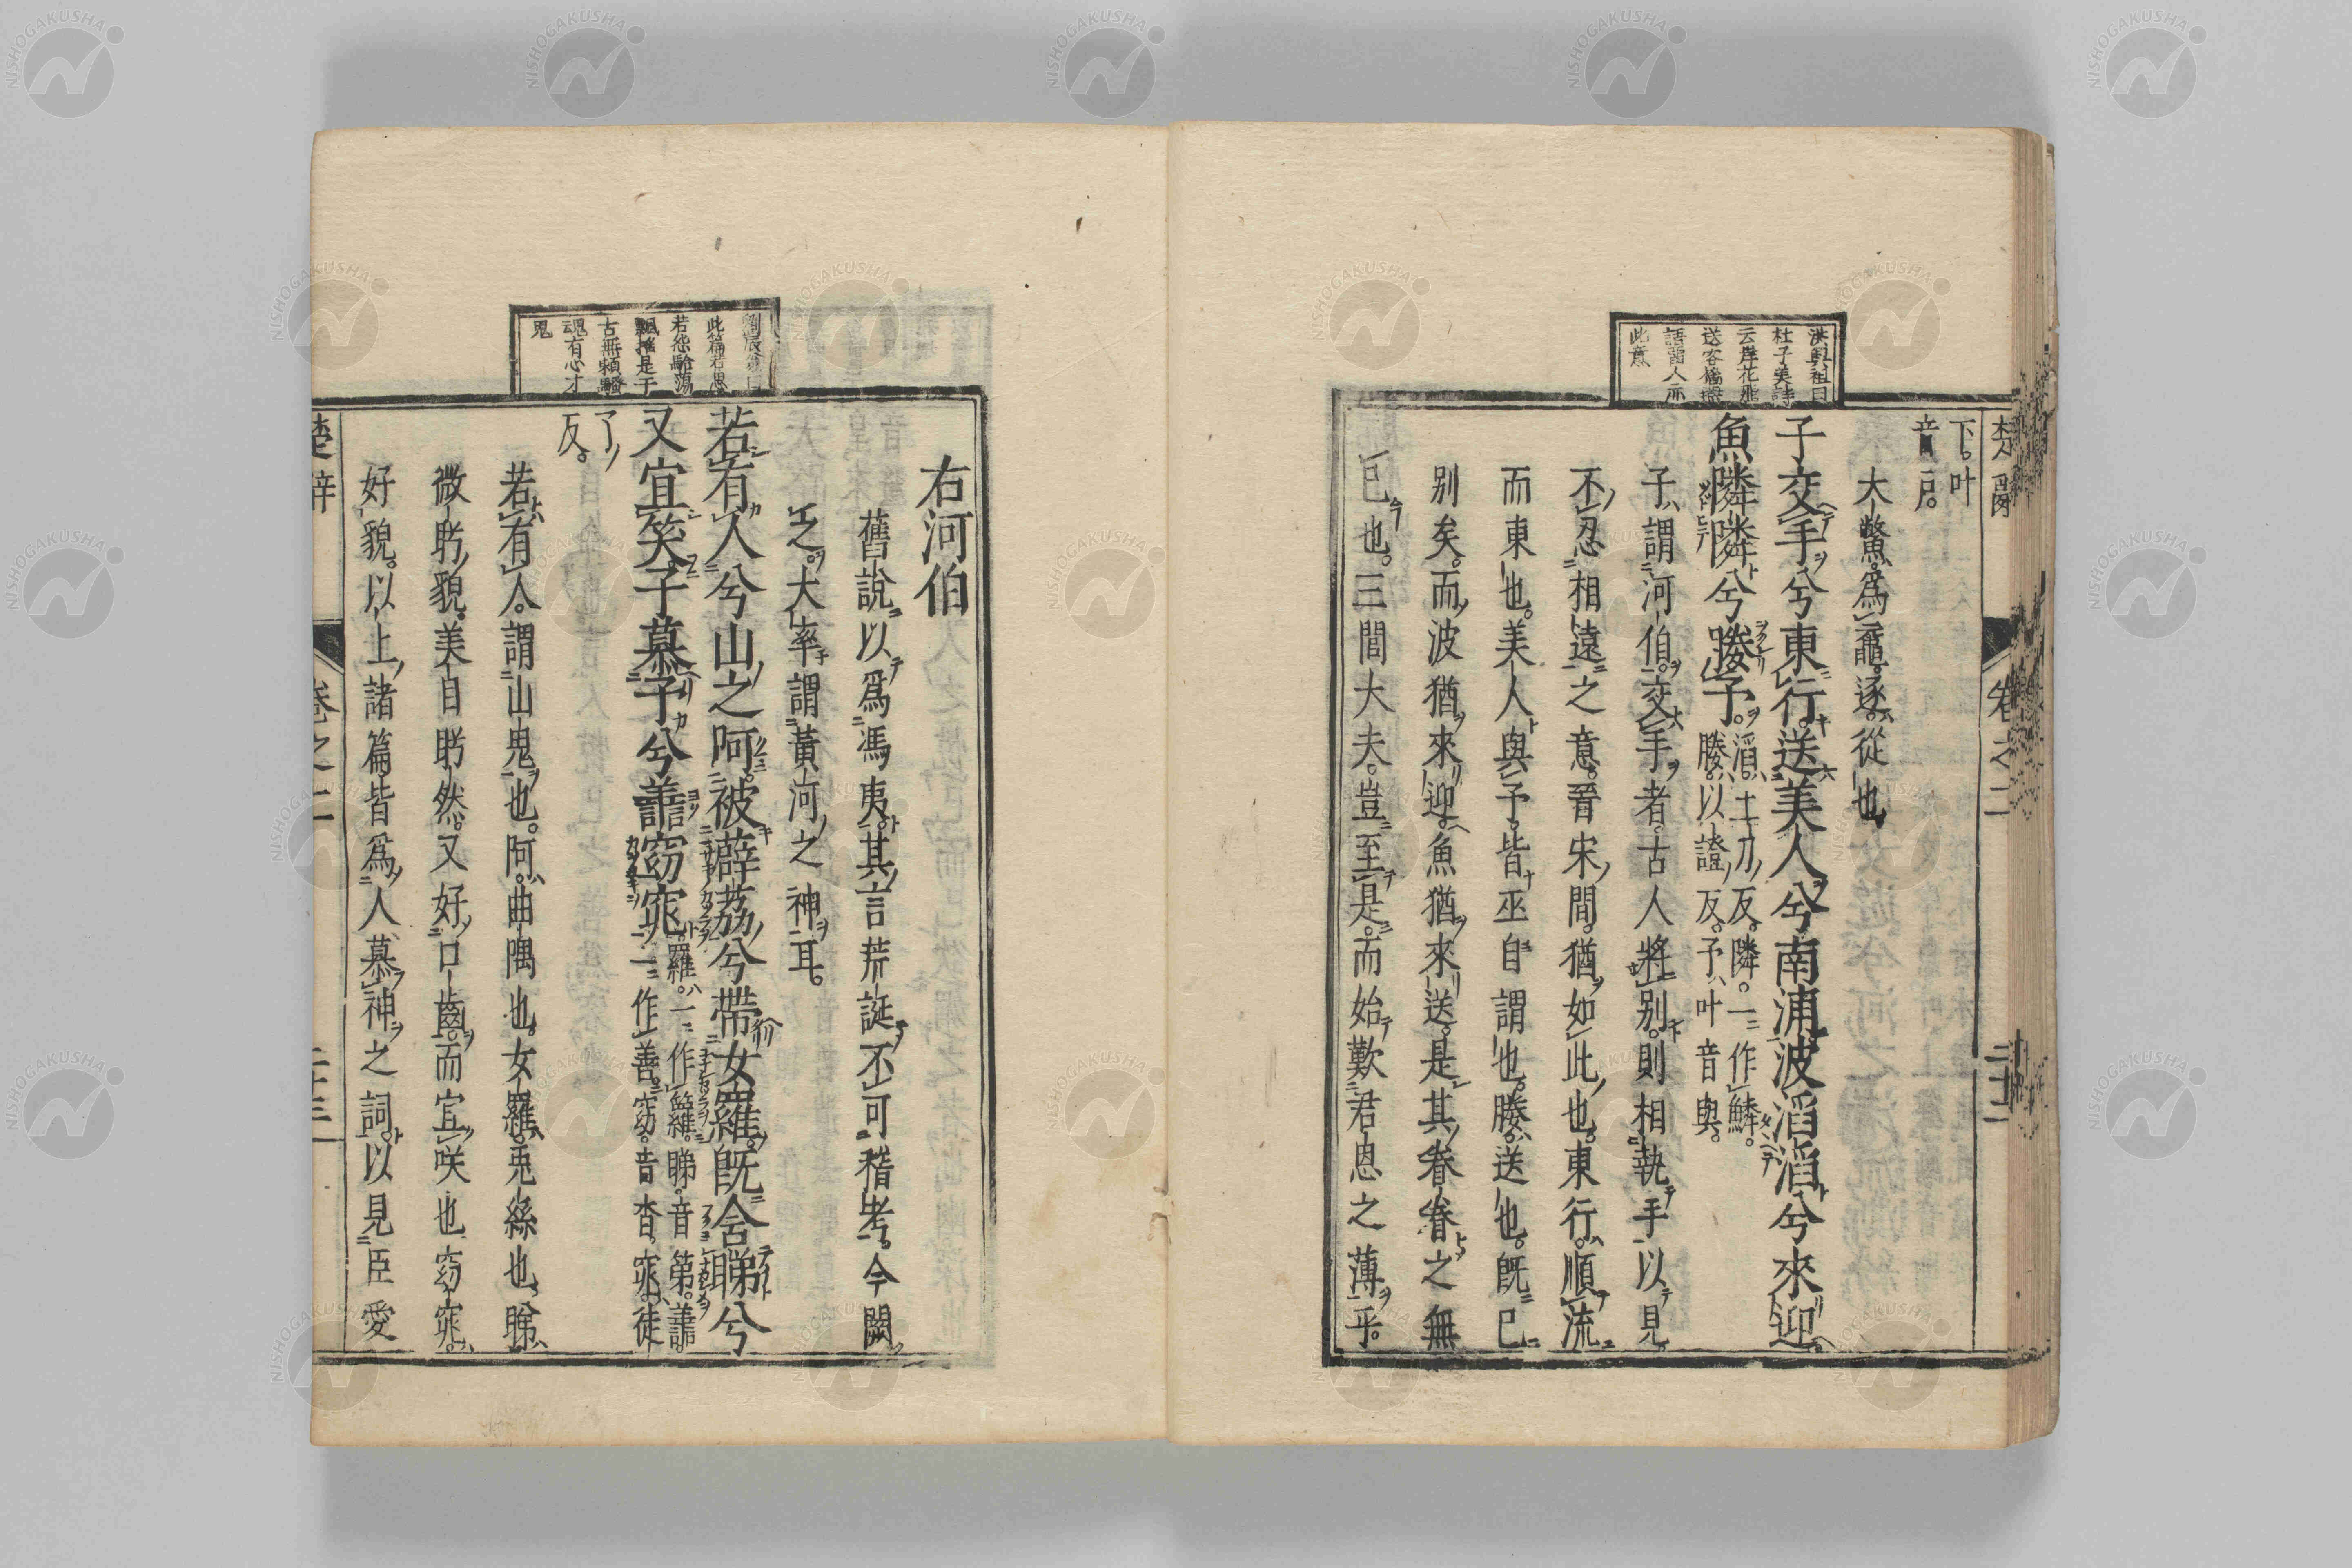 洪興祖曰
杜子美詩
云岸花飛
送客檣燕
語留人亦
此意
下。叶
音戶。
大鼈。爲黿。逐。從也
子交手兮東行。送美人兮南浦。波滔滔兮來迎。
魚隣隣兮媵予。滔。土刀反。隣。一作鱗。
媵。以證反。予。叶音與。
子。謂河伯。交手者。古人將別。則相執手以見
不忍相遠之意。晉宋間。猶如此也。東行。順流
而東也。美人與予。皆巫自謂也。媵。送也。既已
別矣。而波猶來迎。魚猶來送。是其眷眷之無
已也。三閭大夫。豈至是。而始歎君恩之薄乎。
楚辭 卷之二 二十二
劉辰翁曰
此篇若思
若怨駘蕩
飄搖是千
古無賴騷
魂有心才
鬼
右河伯
舊說以爲馮夷。其言荒誕。不可稽考。今闕
之。大率謂黃河之神耳。
若有人兮山之阿。被薜荔兮帶女羅。既含睇兮
又宜笑。子慕予兮善窈窕。羅。一作蘿。睇。音第。譱。
一作善。窈。音杳。窕。徒
了反。
若有人。謂山鬼也。阿。曲隅也。女羅。兎絲也。睇。
微眄貌。美目眄然。又好口齒。而宜咲也窈窕。
好貌。以上諸篇皆爲人慕神之詞。以見臣愛
楚辭 卷之二 二十三